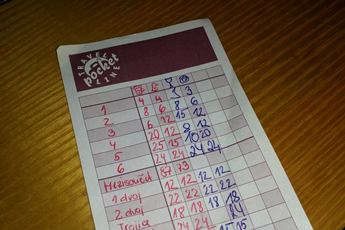 TRAVEL
pocket
LINE
1 4 4 1 3
2 8 6 8 6
3 6 12 15 12
4 20 12 8 12
5 25 15 10 20
6 24 24 24 24
Mezisoučet 87 73
1 dvoj 12 12 12 12
2. dvoj 22 22 22 22
Trojka 18 18 18 18
24 24 24
15 15